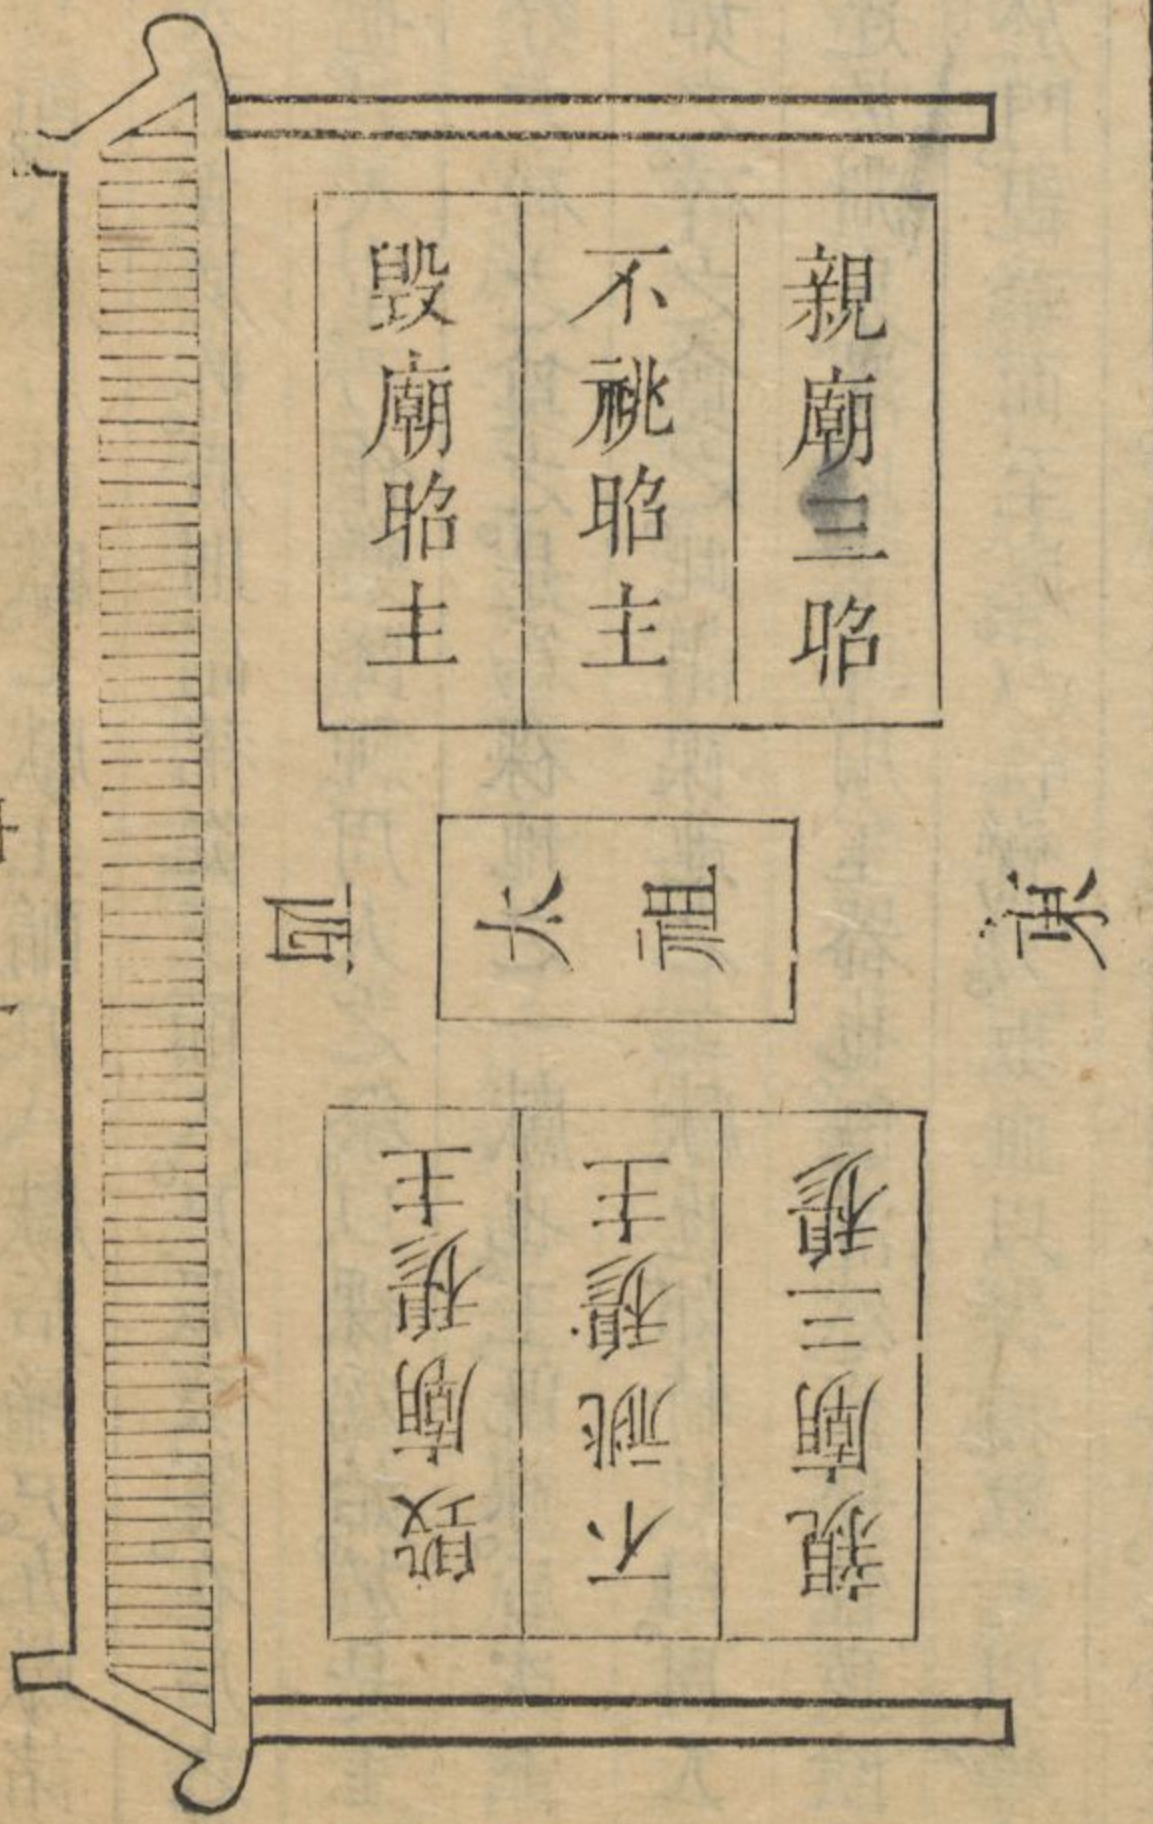 親廟三昭
不祧昭主
毀廟昭主
東
太祖
西
親廟三穆
不祧穆主
毀廟穆主